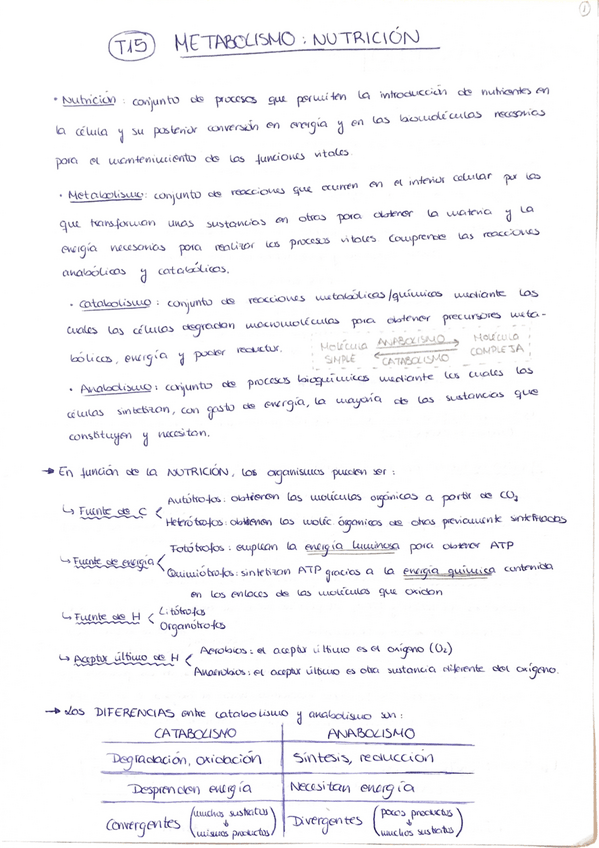 1
T.15 METABOLISMO: NUTRICIÓN
• Nutrición: conjunto de procesos que permiten la introducción de nutrientes en
la célula y su posterior conversión en energía y en las biomoléculas necesarias
para el mantenimiento de las funciones vitales.
• Metabolismo: conjunto de reacciones que ocurren en el interior celular por las
que transforman unas sustancias en otras para obtener la materia y la
energía necesarias para realizar los procesos vitales. Comprende las reacciones
anabólicas y catabólicas.
• Catabolismo: conjunto de reacciones metabólicas/químicas mediante las
cuales las células degradan macromoléculas para obtener precursores meta-
bólicos, energía y poder reductor.
Molécula SIMPLE ANABOLISMO CATABOLISMO Molécula COMPLEJA
• Anabolismo: conjunto de procesos bioquímicos mediante los cuales las
células sintetizan, con gasto de energía, la mayoría de las sustancias que
constituyen y necesitan.
→ En función de la NUTRICIÓN, los organismos pueden ser:
↳ Fuente de C < Autótrofos: obtienen las moléculas orgánicas a partir de CO₂
Heterótrofos: obtienen las moléc orgánicas de otras previamente sintetizadas
↳ Fuente de energía < Fotótrofos: emplean la energía luminosa para obtener ATP
Quimiótrofos: sintetizan ATP gracias a la energía química contenida
en los enlaces de las moléculas que oxidan
↳ Fuente de H < Litótrofos
Organótrofos
↳ Aceptor último de H < Aerobios: el aceptor último es el oxígeno (O₂)
Anaerobios: el aceptor último es otra sustancia diferente del oxígeno.
→ Las DIFERENCIAS entre catabolismo y anabolismo son:
CATABOLISMO ANABOLISMO
Degradación, oxidación Síntesis, reducción
Desprenden energía Necesitan energía
Convergentes (muchos sustratos ↓ mismos productos) Divergentes (pocos productos ↓ muchos sustratos)